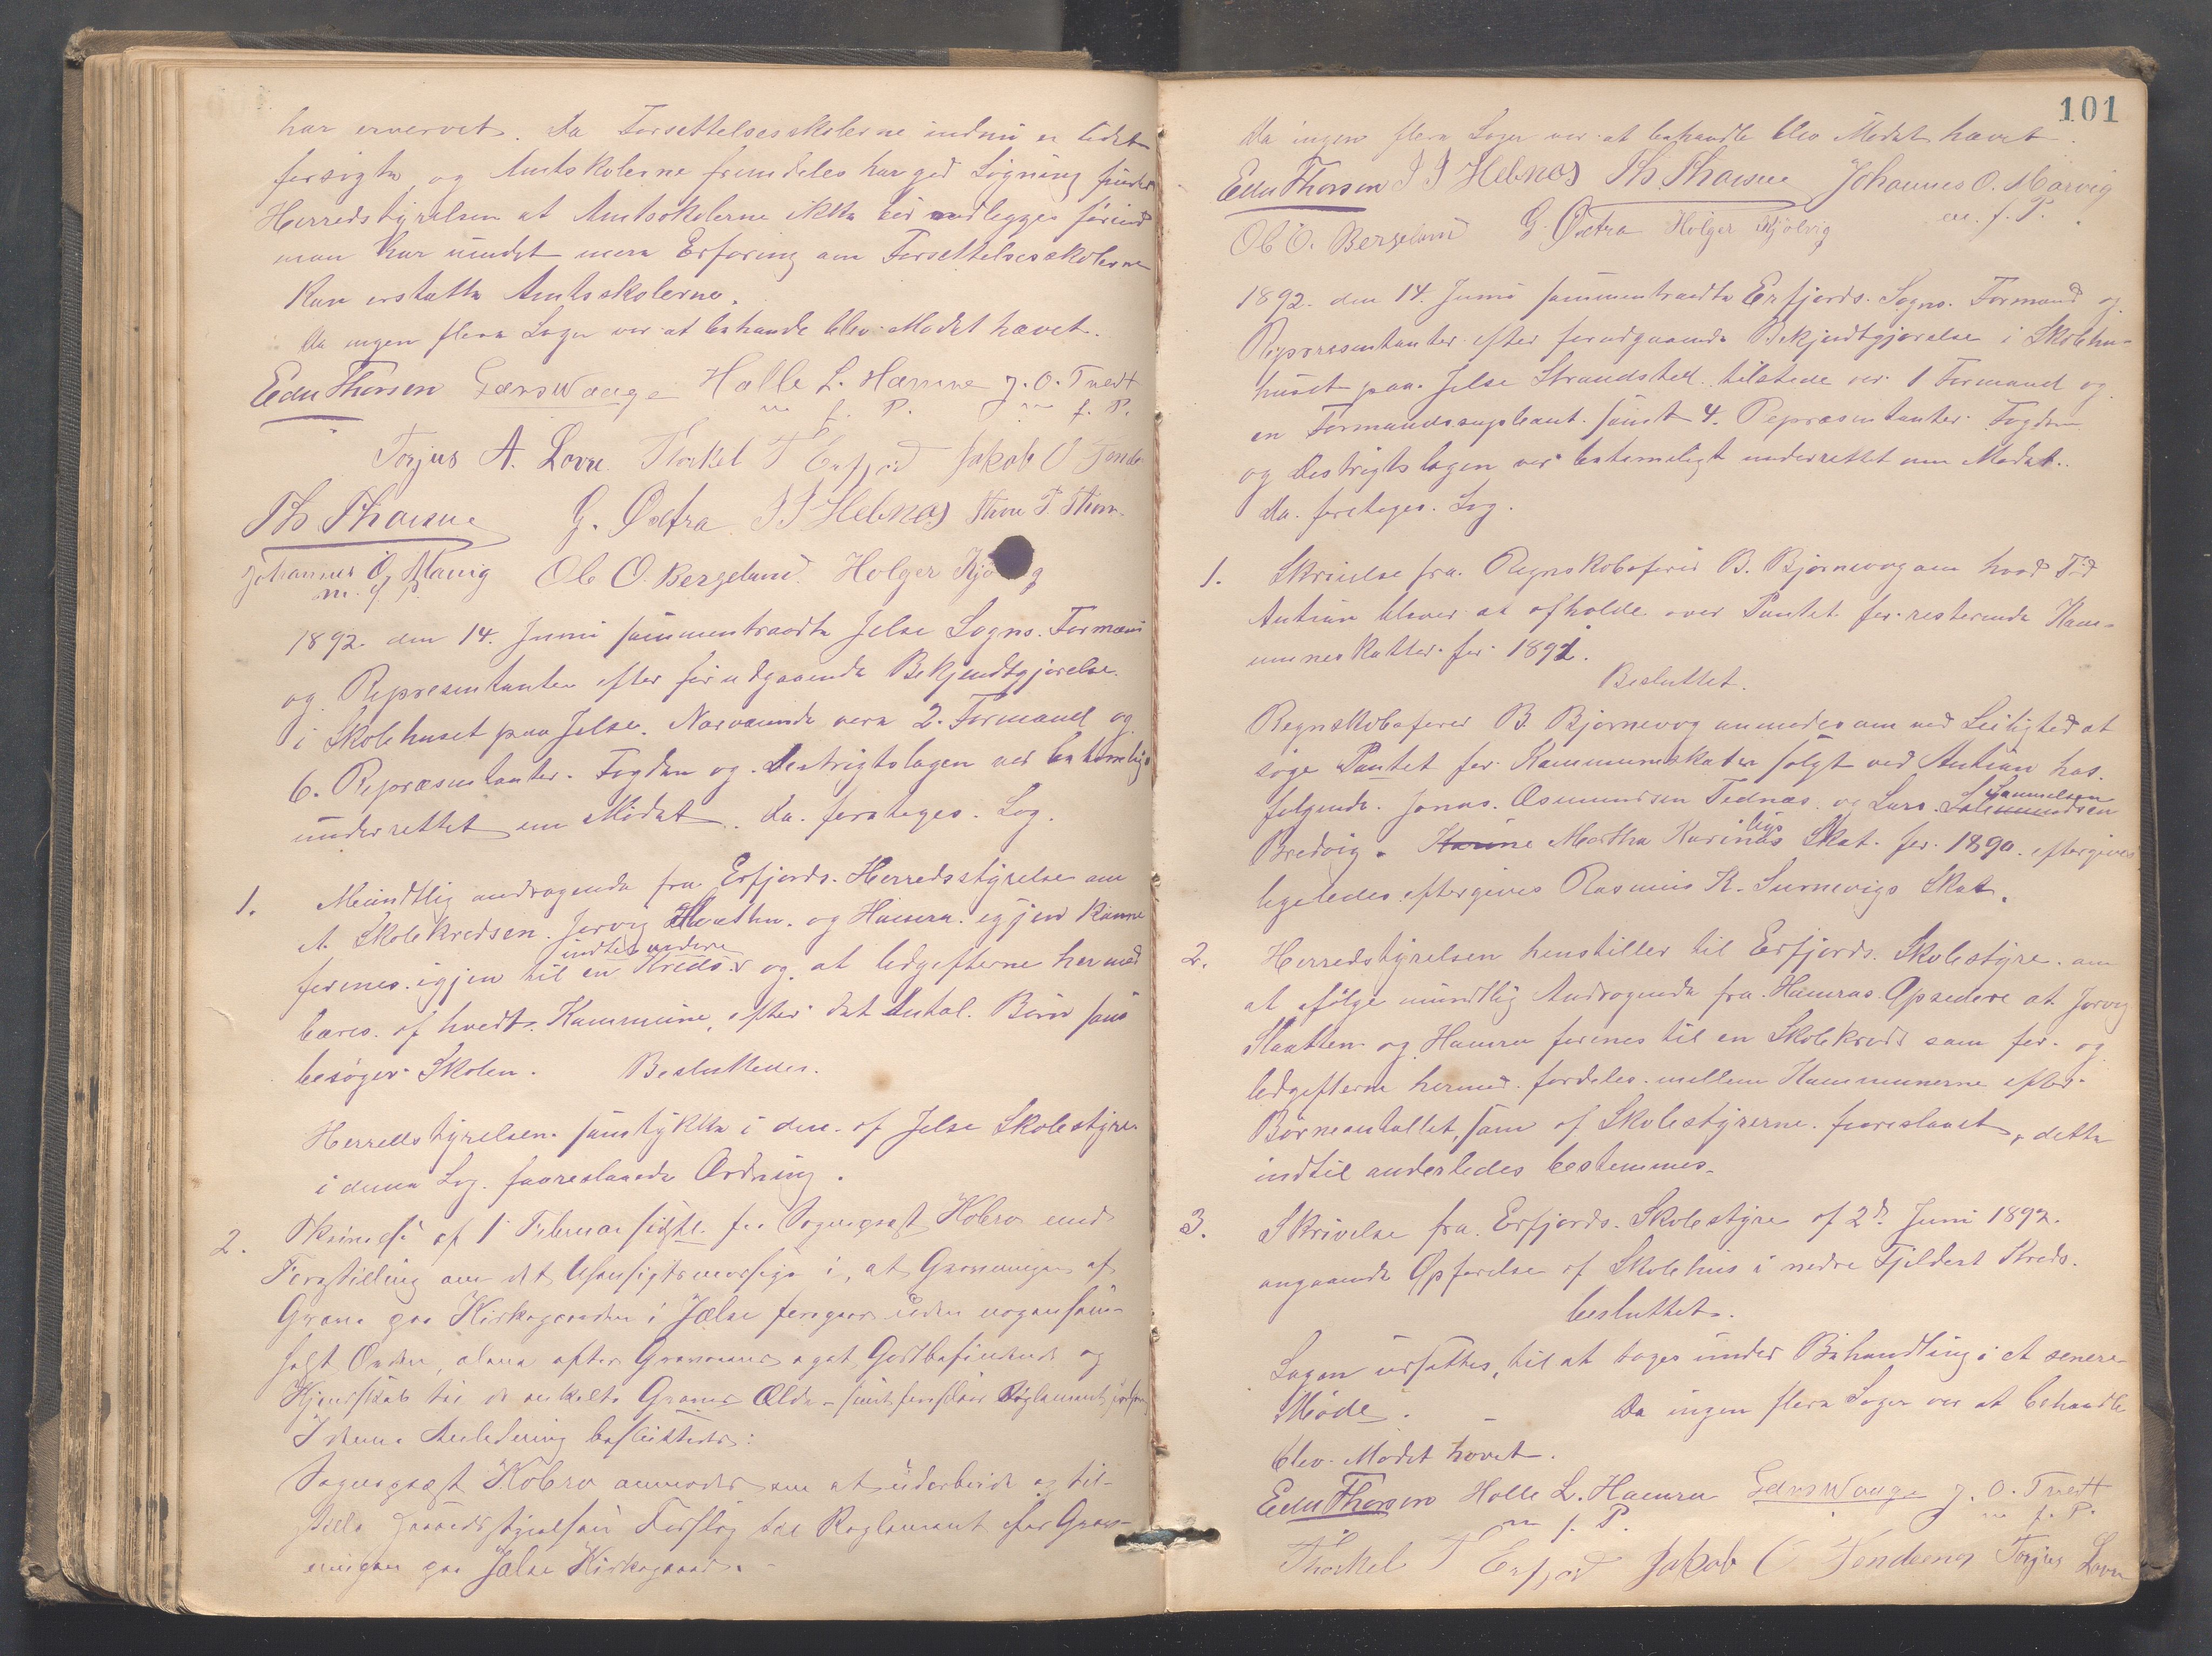 har ervervet. Da Forsettelsesskolerne indnu er lidet
forsøgte og Amtskolerne fremdeles har god Søgning finder
Herredstyrelsen at Amtsskolerne ikke bør nedlegges førend
man har vundet mere Erfaring om Forsettelsesskolerne
kan erstatte Amtsskolerne.
Da ingen flere Sager var at behandle blev Mødet hævet.
Edu Thorsen Lars Waage Halle L. Hamre J. O. Tvedt
m f. P. m f. P.
Torjus A. Lovra Thorkel T Erfjord Jakob O Tende
Th. Thorsne G. Østra J J Hebnes Thore T Thors
Johannes O. Marvig Ole O. Bergeland. Holger Kjølvig
m. f. P.
1892. den 14. Juni sammentraadte Jelse Sogns. Formænd
og Representanter efter forudgaaende Bekjendtgjørelse
i Skolehuset paa Jelse. Nærværende vare 2. Formænd og
6. Representanter. Fogden og Destrigtslægen var betimeligt
underrettet om Mødet. Da. foretoges. Sag.
1. Mundtlig andragende fra Erfjords. Herredsstyrelse om
at Skolekredsen. Jørvig Slaatten. og Hamre. igjen kunne
indtil videre
forenes. igjen til en Kreds. og at Udgifterne hermed
bæres. af hvert. Kommune, efter det Antal. Børn som
besøger Skolen. Besluttedes.
Herredstyrelsen. samtykker i den. af Jelse Skolestyre
i denne Sag. foreslaaede Ordning.
2. Skrivelse af 1 Februar sidstl. fra Sogneprest Kobro med
Forestilling om det Uhensigtsmæssige i, at Gravningen af
Grave paa Kirkegaarden i Jælse foregaar uden nogensom-
helst Orden, alene efter Gravernes eget Godtbefindende og
Kjendskab til de enkelte Graves Ælde – samt foreslaar Reglement
I denne Anledning besluttedes:
Sogneprest Kobro anmodes om at udarbeide og til-
stille Herredsstyrelsen Forslag til Reglement for Grav-
ningen paa Jælse Kirkegaard.
101
Da ingen flere Sager var at behandle blev Mødet hævet.
Edu Thorsen J J Hebnes Th. Thorsne Johannes O. Marvig
m. f. P.
Ole O. Bergeland G. Østra Holger Kjølvig
1892. den 14. Juni sammentraadte Erfjords. Sogns. Formænd og
Representanter efter forudgaaende Bekjendtgjørelse i Skolehu-
huset paa. Jelse Strandsted. tilstede var 1 Formand og
en Formandssupleant. samt 4. Representanter. Fogden
og Destrigtslægen var betimeligt underrettet om Mødet.
Da. foretoges. Sag.
1. Skrivelse fra. Regnskabsfører B. Bjørnevog om hvad Tid
Auktion bliver at afholde over Pantet for resterende Kom-
muneskatter for 1891.
Besluttet.
Regnskabsfører B Bjørnevog anmodes om ved Leilighed at
søge Pantet for Kommuneskatten solgt ved Auktion hos.
Samuelsen
følgende. Jonas. Osmundsen Tednæs. og Lars.
Bredvig. Karine Martha Karines Skat. for. 1890. eftergives
ligeledes eftergives Rasmus R. Surnevigs Skat.
2. Herredstyrelsen henstiller til Erfjords. Skolestyre. om
at ifølge mundtlig Andragende fra. Hamras Opsidere at Jørvig
Slaatten og Hamra forenes til en Skolekreds som før og
Udgifterne hermed. fordeles. mellem Kommunerne efter
Børneantallet, som af Skolestyrerne. foreslaaet, dette
indtil anderledes bestemmes.
3. Skrivelse fra Erfjords. Skolestyre af 2d. Juni 1892.
angaaende Opførelse af Skolehus i nedre Fjildest Kreds.
besluttet.
Sagen udsættes, til at tages under Behandling i et senere
Møde. – Da ingen flere Sager var at behandle
blev Mødet hævet.
Edu Thorsen Halle L. Hamra Lars Waage J. O. Tvedt
m f. P. m f. P.
Thorkel T Erfjord Jakob O Tendenes Torjus Lovra